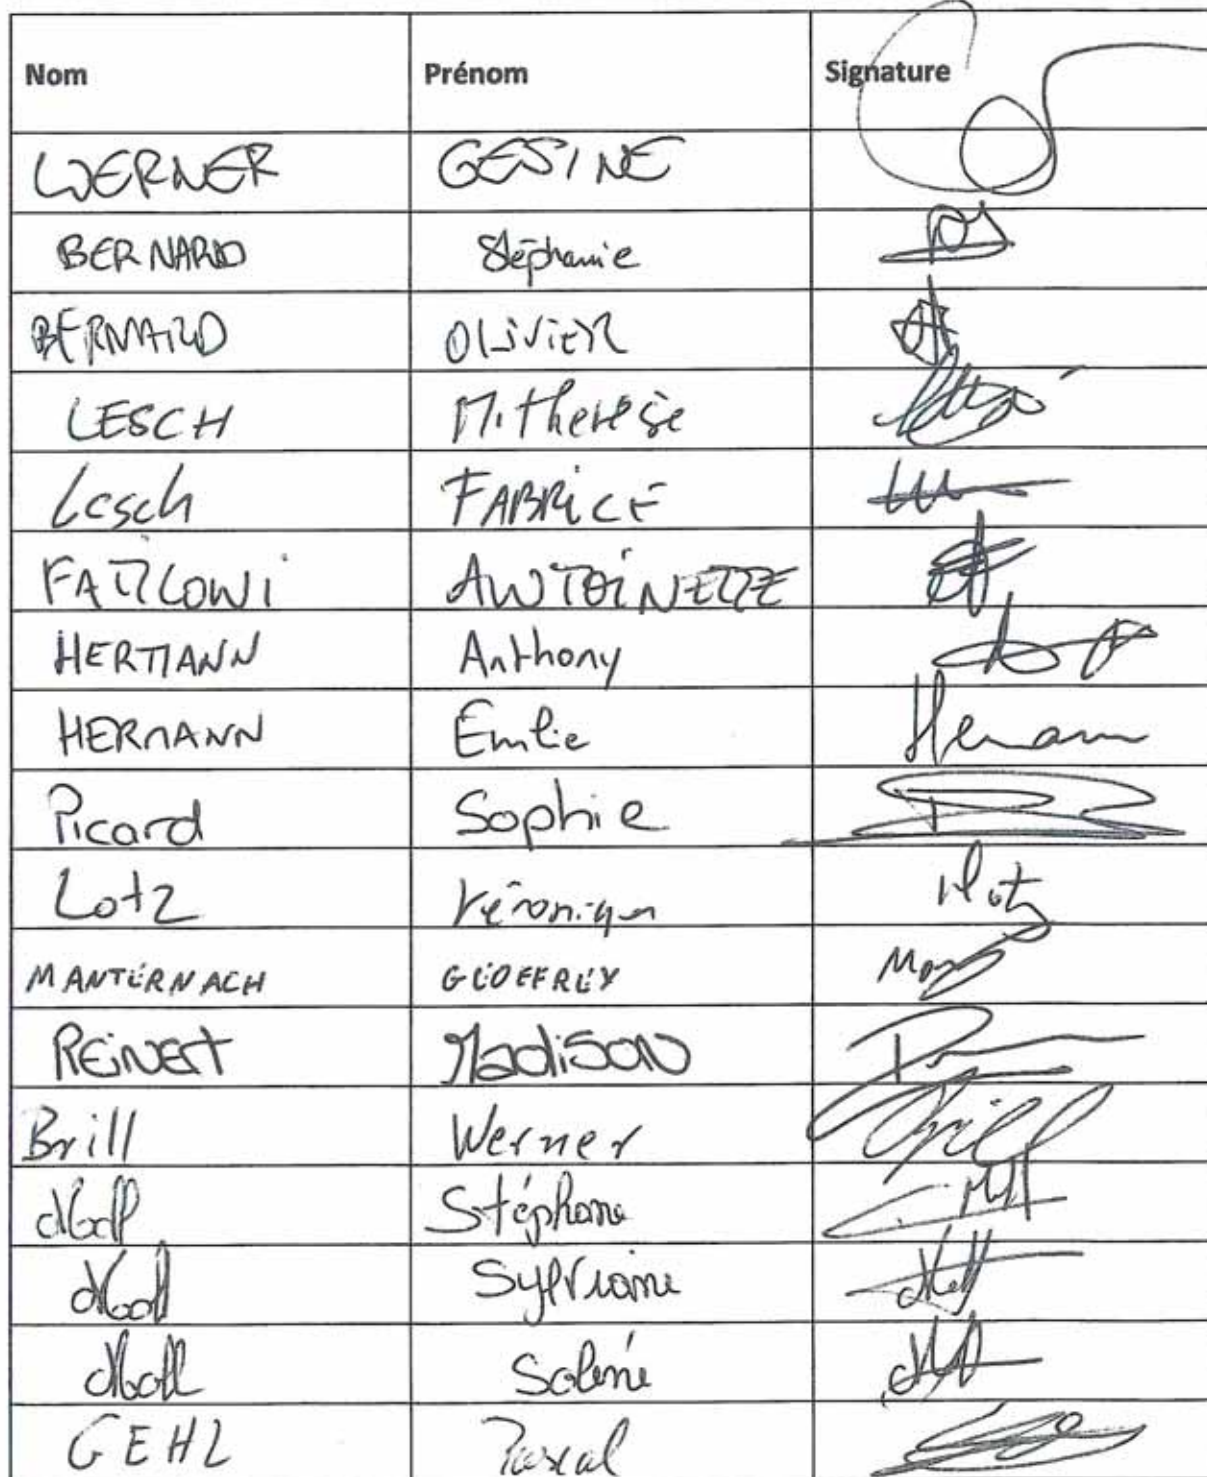 Nom Prénom Signature
WERNER GESINE
BERNARD Stéphanie
BERNARD OLIVIER
LESCH M.therese
Lesch FABRICE
ANTOINETTE
HERMANN Anthony
HERMANN Emilie Hermann
Picard Sophie
Lotz Véronique
MANTERNACH GEOFFREY
REINERT Madison
Brill Werner Brill
Moll Stéphane
Moll Sylviane
Moll Solène
GEHL Pascal